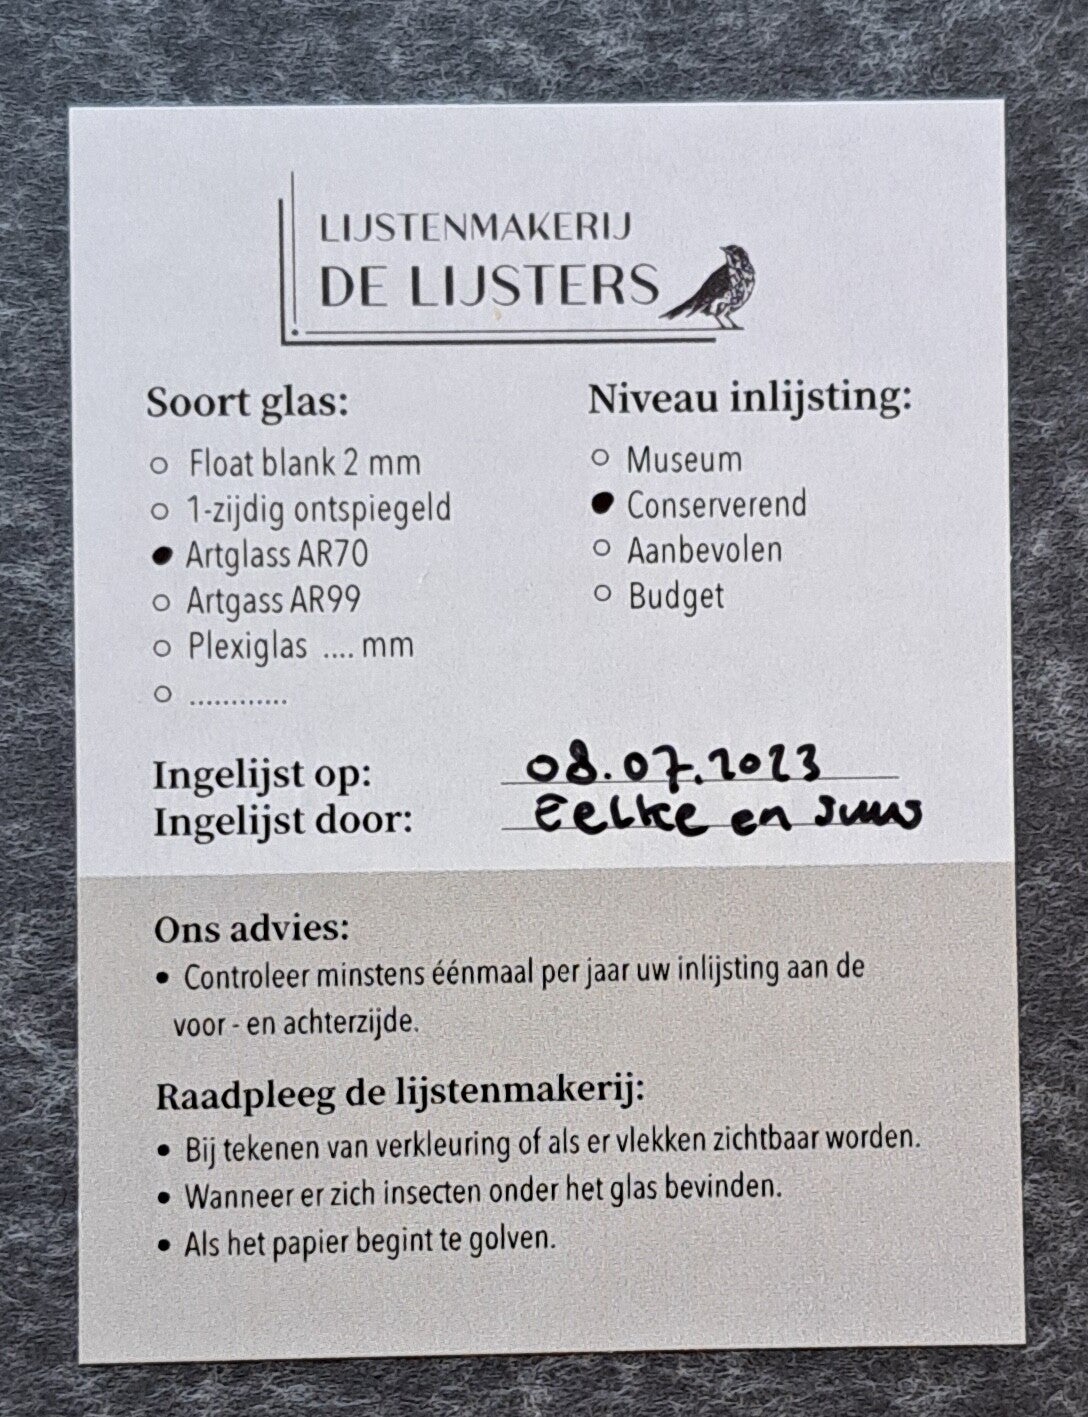 LIJSTENMAKERIJ
DE LIJSTERS
Soort glas:
○ Float blank 2 mm
○ 1-zijdig ontspiegeld
● Artglass AR70
○ Artgass AR99
○ Plexiglas .... mm
○ ............
Niveau inlijsting:
○ Museum
● Conserverend
○ Aanbevolen
○ Budget
Ingelijst op: 08.07.2023
Ingelijst door: Eelke en Juus
Ons advies:
• Controleer minstens éénmaal per jaar uw inlijsting aan de
voor - en achterzijde.
Raadpleeg de lijstenmakerij:
• Bij tekenen van verkleuring of als er vlekken zichtbaar worden.
• Wanneer er zich insecten onder het glas bevinden.
• Als het papier begint te golven.